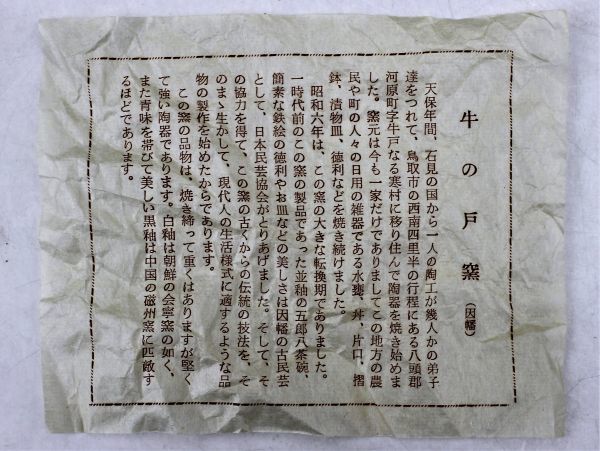 牛の戸窯（因幡）
天保年間、石見の国から一人の陶工が幾人かの弟子
達をつれて、鳥取市の西南四里半の行程にある八頭郡
河原町字牛戸なる寒村に移り住んで陶器を焼き始めま
した。窯元は今も一家だけでありましてこの地方の農
民や町の人々の日用の雑器である水甕、丼、片口、摺
鉢、漬物皿、徳利などを焼き続けました。
昭和六年は、この窯の大きな転換期でありました。
一時代前のこの窯の製品であった並釉の五郎八茶碗、
簡素な鉄絵の徳利やお皿などの美しさは因幡の古民芸
として、日本民芸協会がとりあげました。そして、そ
の協力を得て、この窯の古くからの伝統の技法を、そ
のまゝ生かして、現代人の生活様式に適するような品
物の製作を始めたからであります。
この窯の品物は、焼き締って重くはありますが堅く
て強い陶器であります。白釉は朝鮮の会寧窯の如く、
また青味を帯びて美しい黒釉は中国の磁州窯に匹敵す
るほどであります。